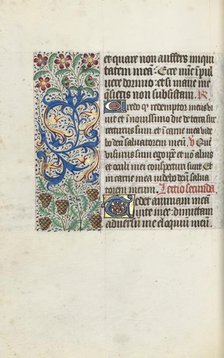 et quare non aufers iniqui
tatem meã? Ecce nũc ĩ pul
uere dormio et si mane me
quesieris non subsistam. R
Credo q̃ redemptor meus
uiuit et in nouissimo die de terra sur
recturus sum Et in carne mea uide
bo deum saluatorem meũ. V Quẽ
uisurus sum ego ip̃e et non alius
et oculi mei conspecturi sunt Et
in carne mea uidebo deũ salua
torem meum. Lectio secunda
Tedet animam meã
uite mee dimittam
aduersũ me eloquiũ meũ